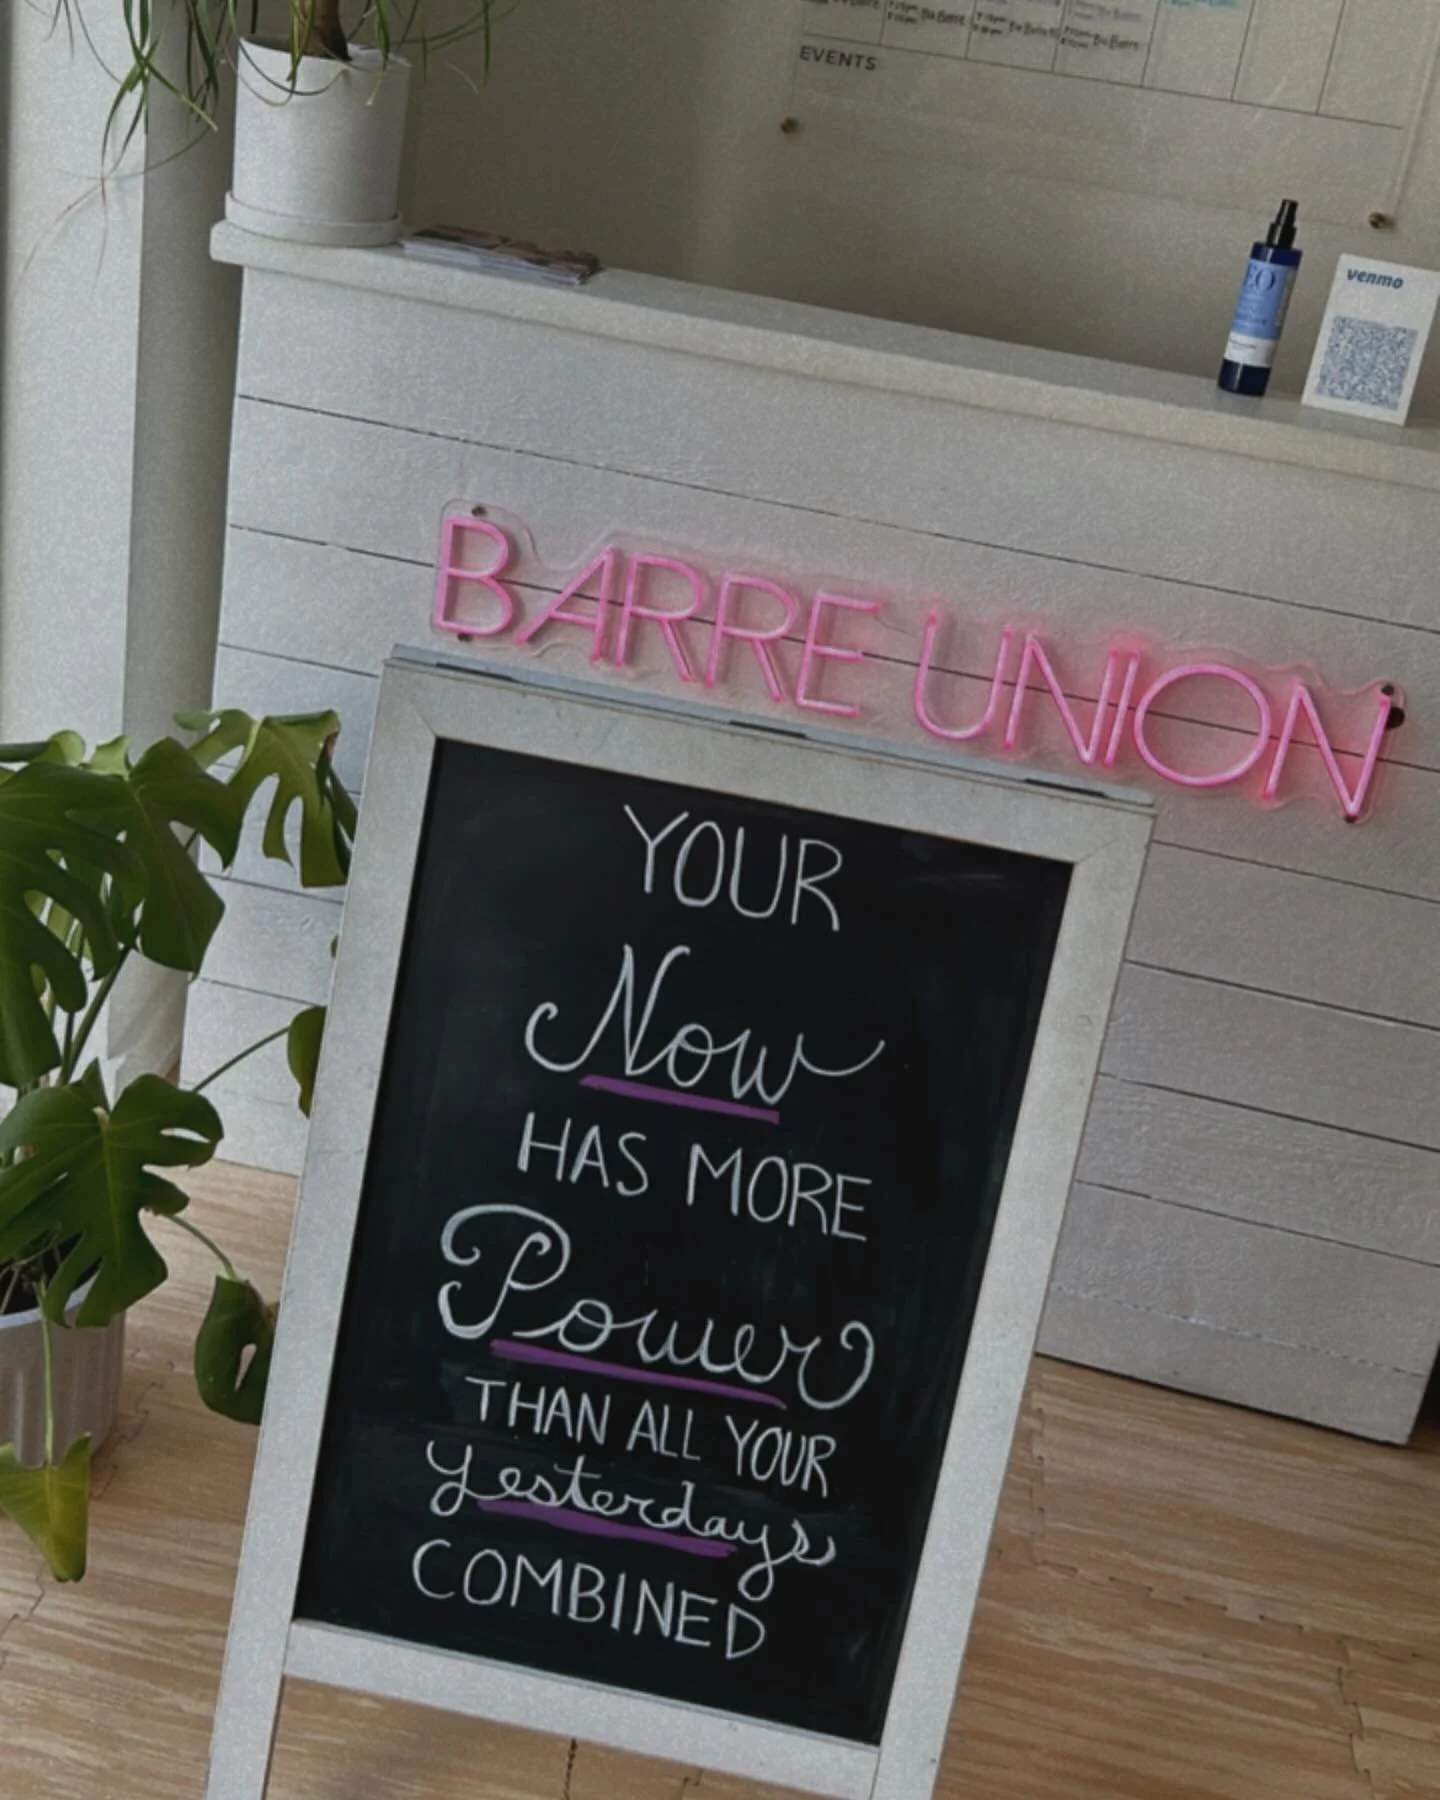 EVENTS
venmo
EO
BARRE UNION
YOUR
Now
HAS MORE
Power
THAN ALL YOUR
Yesterdays
COMBINED